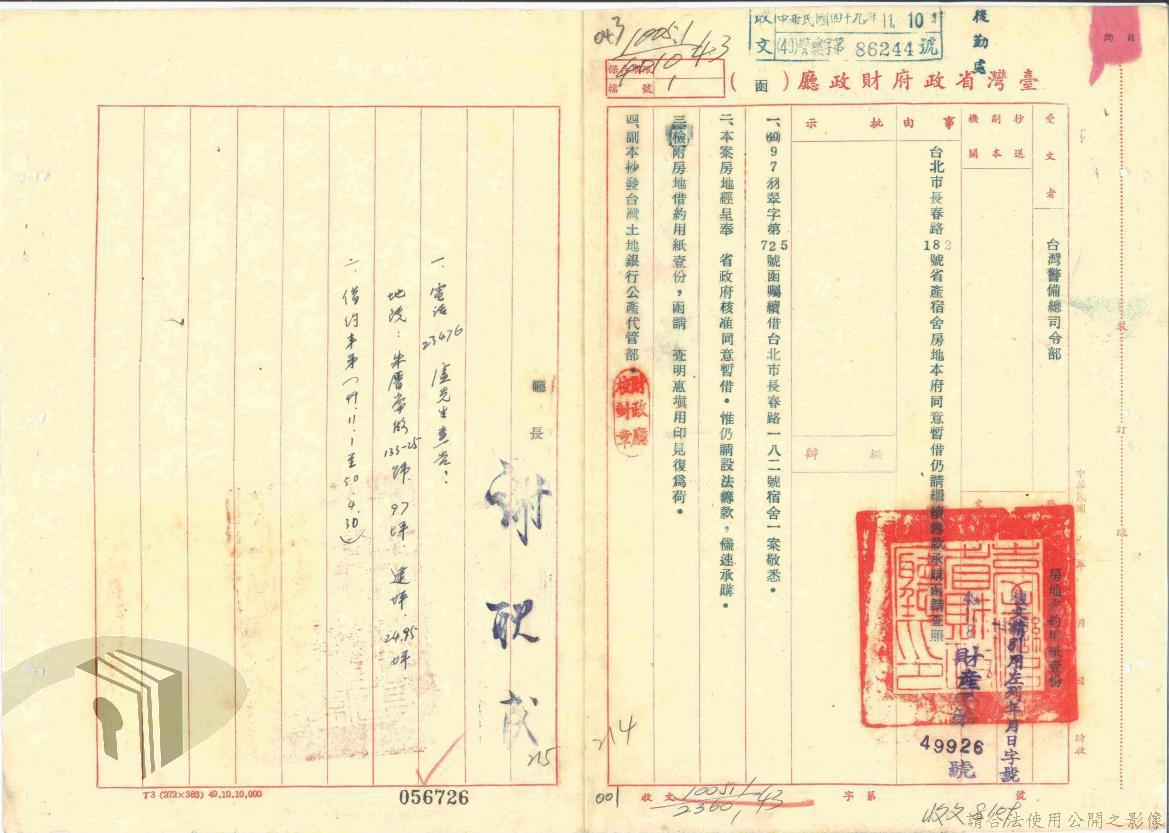 後勤處
收文 中華民國四十九年 11. 10
(49)警總字第 86244 號
臺灣省政府財政廳(函)
檔號
受文者
台灣警備總司令部
抄送副本機關
事由
台北市長春路182號省產宿舍房地本府同意暫借仍請繼續籌款承購函請查照
批示
擬辦
房地借約用紙壹份
復文請引用左列年月日字號
財產
49926
號
一、(49)97羽翠字第725號函囑續借台北市長春路一八二號宿舍一案敬悉。
二、本案房地經呈奉 省政府核准同意暫借。惟仍請設法籌款，儘速承購。
三、檢附房地借約用紙壹份，函請 查明惠填用印見復爲荷。
四、副本抄發台灣土地銀行公產代管部。
財政廳校對章
廳長
謝耿
一、電話23476 盧先生查告：
地號：朱厝崙段133-25號 97坪 建坪 24.95坪
二、借約本來(49.11.1至50.4.30)
裝
訂
線
中華民國 年 月 日 時收
收文 字第 號
10051.43
2360
001
214
215
收文8109
T3 (272×388) 49.10.10,000
056726
請合法使用公開之影像